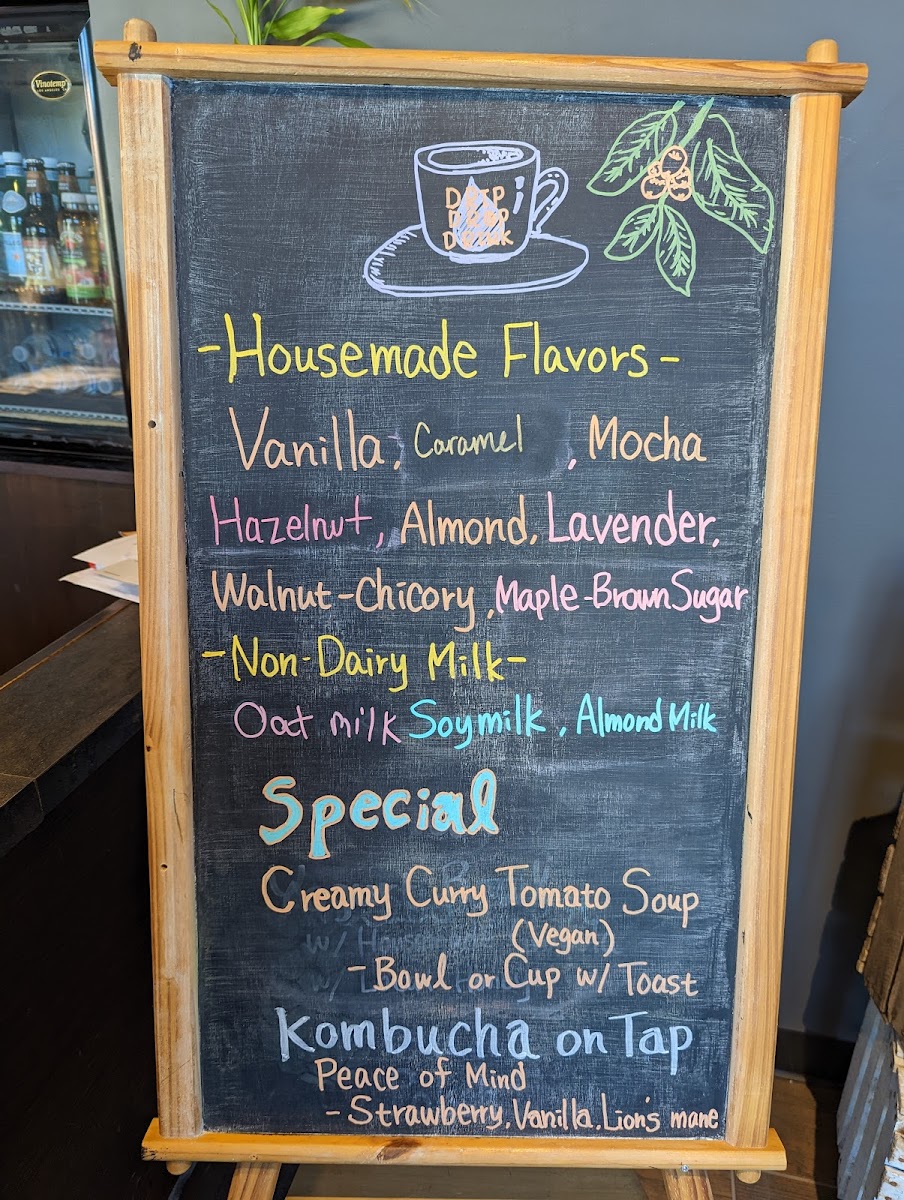 Vinotemp
DRIP
DROP
DRINK
-Housemade Flavors-
Vanilla, Caramel, Mocha
Hazelnut, Almond, Lavender,
Walnut-Chicory, Maple-Brown Sugar
-Non-Dairy Milk-
Oat milk Soymilk, Almond Milk
Special
Creamy Curry Tomato Soup
(Vegan)
-Bowl or Cup w/ Toast
Kombucha on Tap
Peace of Mind
- Strawberry, Vanilla, Lion's mane